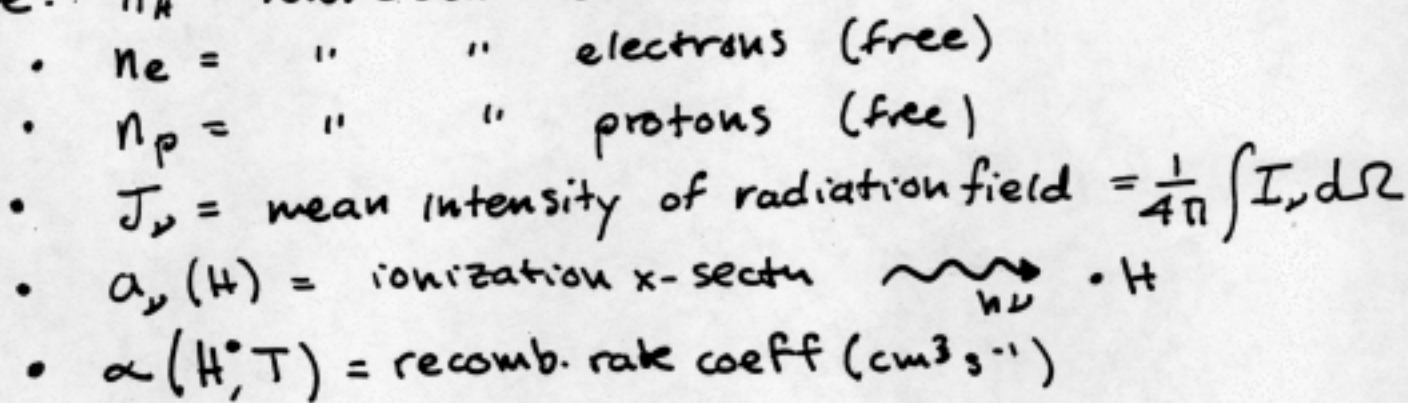 • nₑ = " " electrons (free)
• nₚ = " " protons (free)
• J_ν = mean intensity of radiation field = 1/4π ∫ I_ν dΩ
• a_ν (H) = ionization x-sectn hν • H
• α (H°, T) = recomb. rate coeff (cm³ s⁻¹)